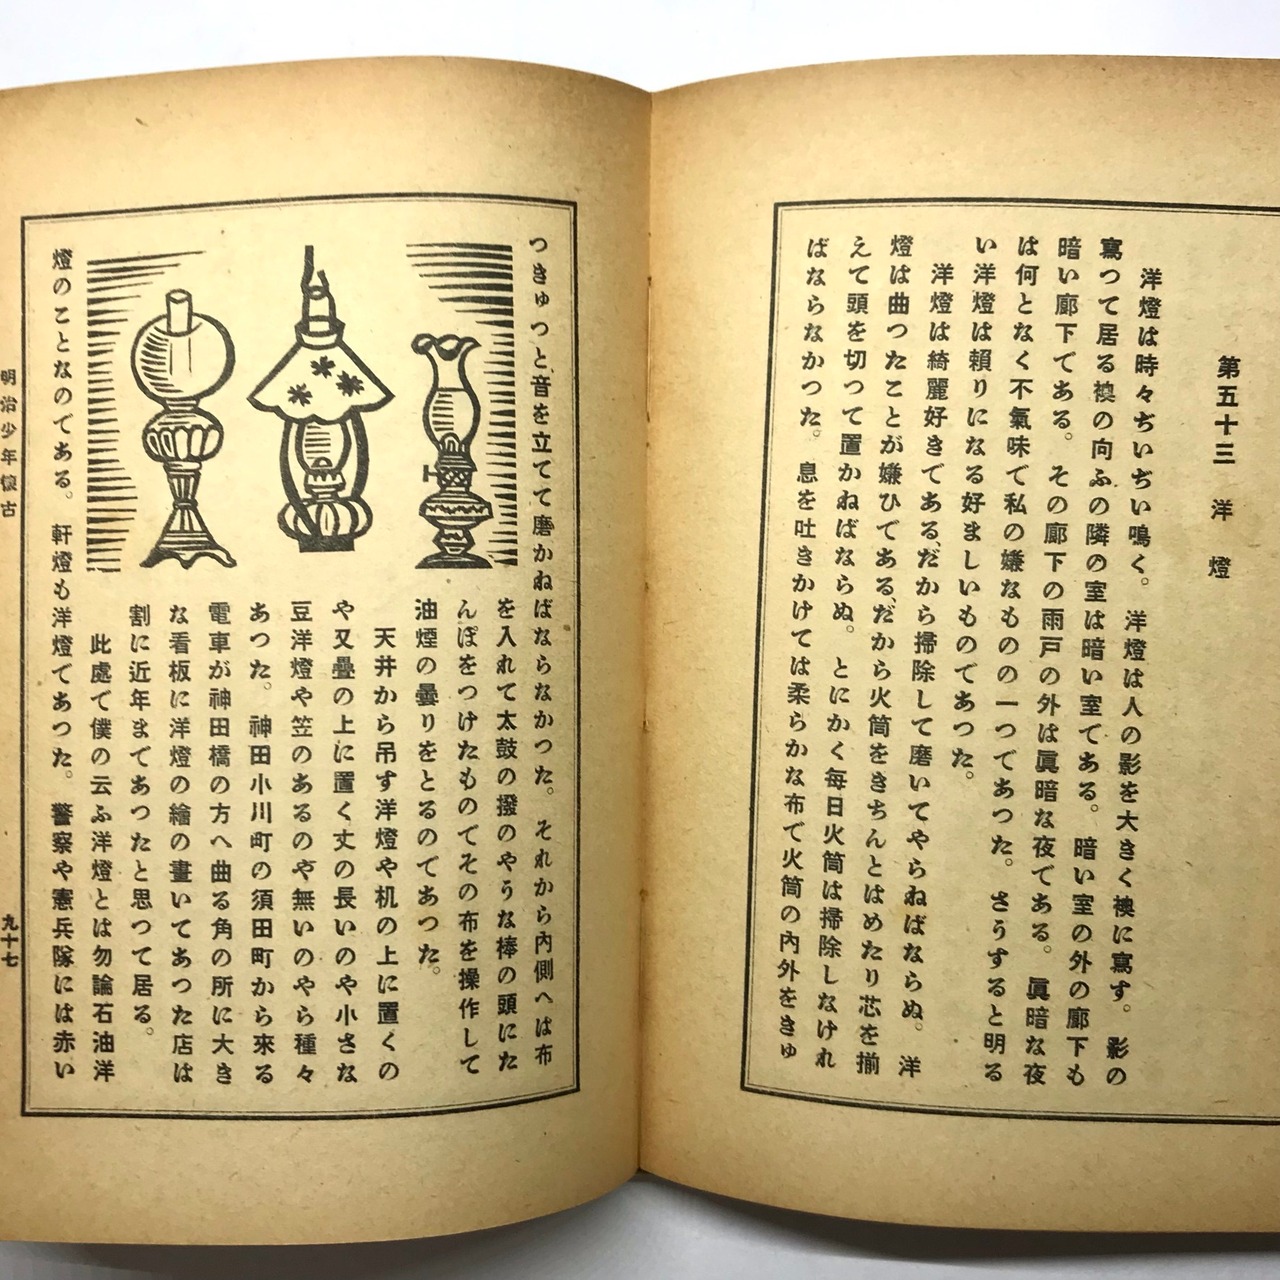 第五十三　洋燈
洋燈は時々ぢいぢい鳴く。洋燈は人の影を大きく襖に寫す。影の
寫つて居る襖の向ふの隣の室は暗い室である。暗い室の外の廊下も
暗い廊下である。その廊下の雨戸の外は眞暗な夜である。眞暗な夜
は何となく不氣味で私の嫌なものの一つであつた。さうすると明る
い洋燈は賴りになる好ましいものであつた。
洋燈は綺麗好きである、だから掃除して磨いてやらねばならぬ。洋
燈は曲つたことが嫌ひである、だから火筒をきちんとはめたり芯を揃
えて頭を切つて置かねばならぬ。とにかく毎日火筒は掃除しなけれ
ばならなかつた。息を吐きかけては柔らかな布で火筒の內外をきゆ
つきゆつと音を立てて磨かねばならなかつた。それから內側へは布
を入れて太鼓の撥のやうな棒の頭にた
んぽをつけたものでその布を操作して
油煙の曇りをとるのであつた。
天井から吊す洋燈や机の上に置くの
や又疊の上に置く丈の長いのや小さな
豆洋燈や笠のあるのや無いのやら種々
あつた。神田小川町の須田町から來る
電車が神田橋の方へ曲る角の所に大き
な看板に洋燈の繪の畫いてあつた店は
割に近年まであつたと思つて居る。
此處で僕の云ふ洋燈とは勿論石油洋
燈のことなのである。軒燈も洋燈であつた。警察や憲兵隊には赤い
明治少年懷古
九十七